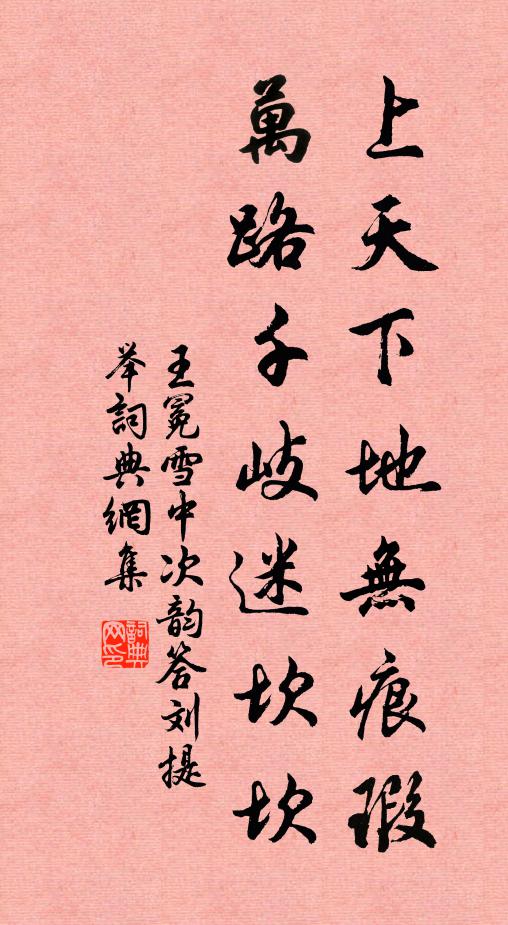 上天下地無痕瑕
萬路千岐迷坎坎
王冕雪中次韵答刘提
举詞典網集
詞典网印